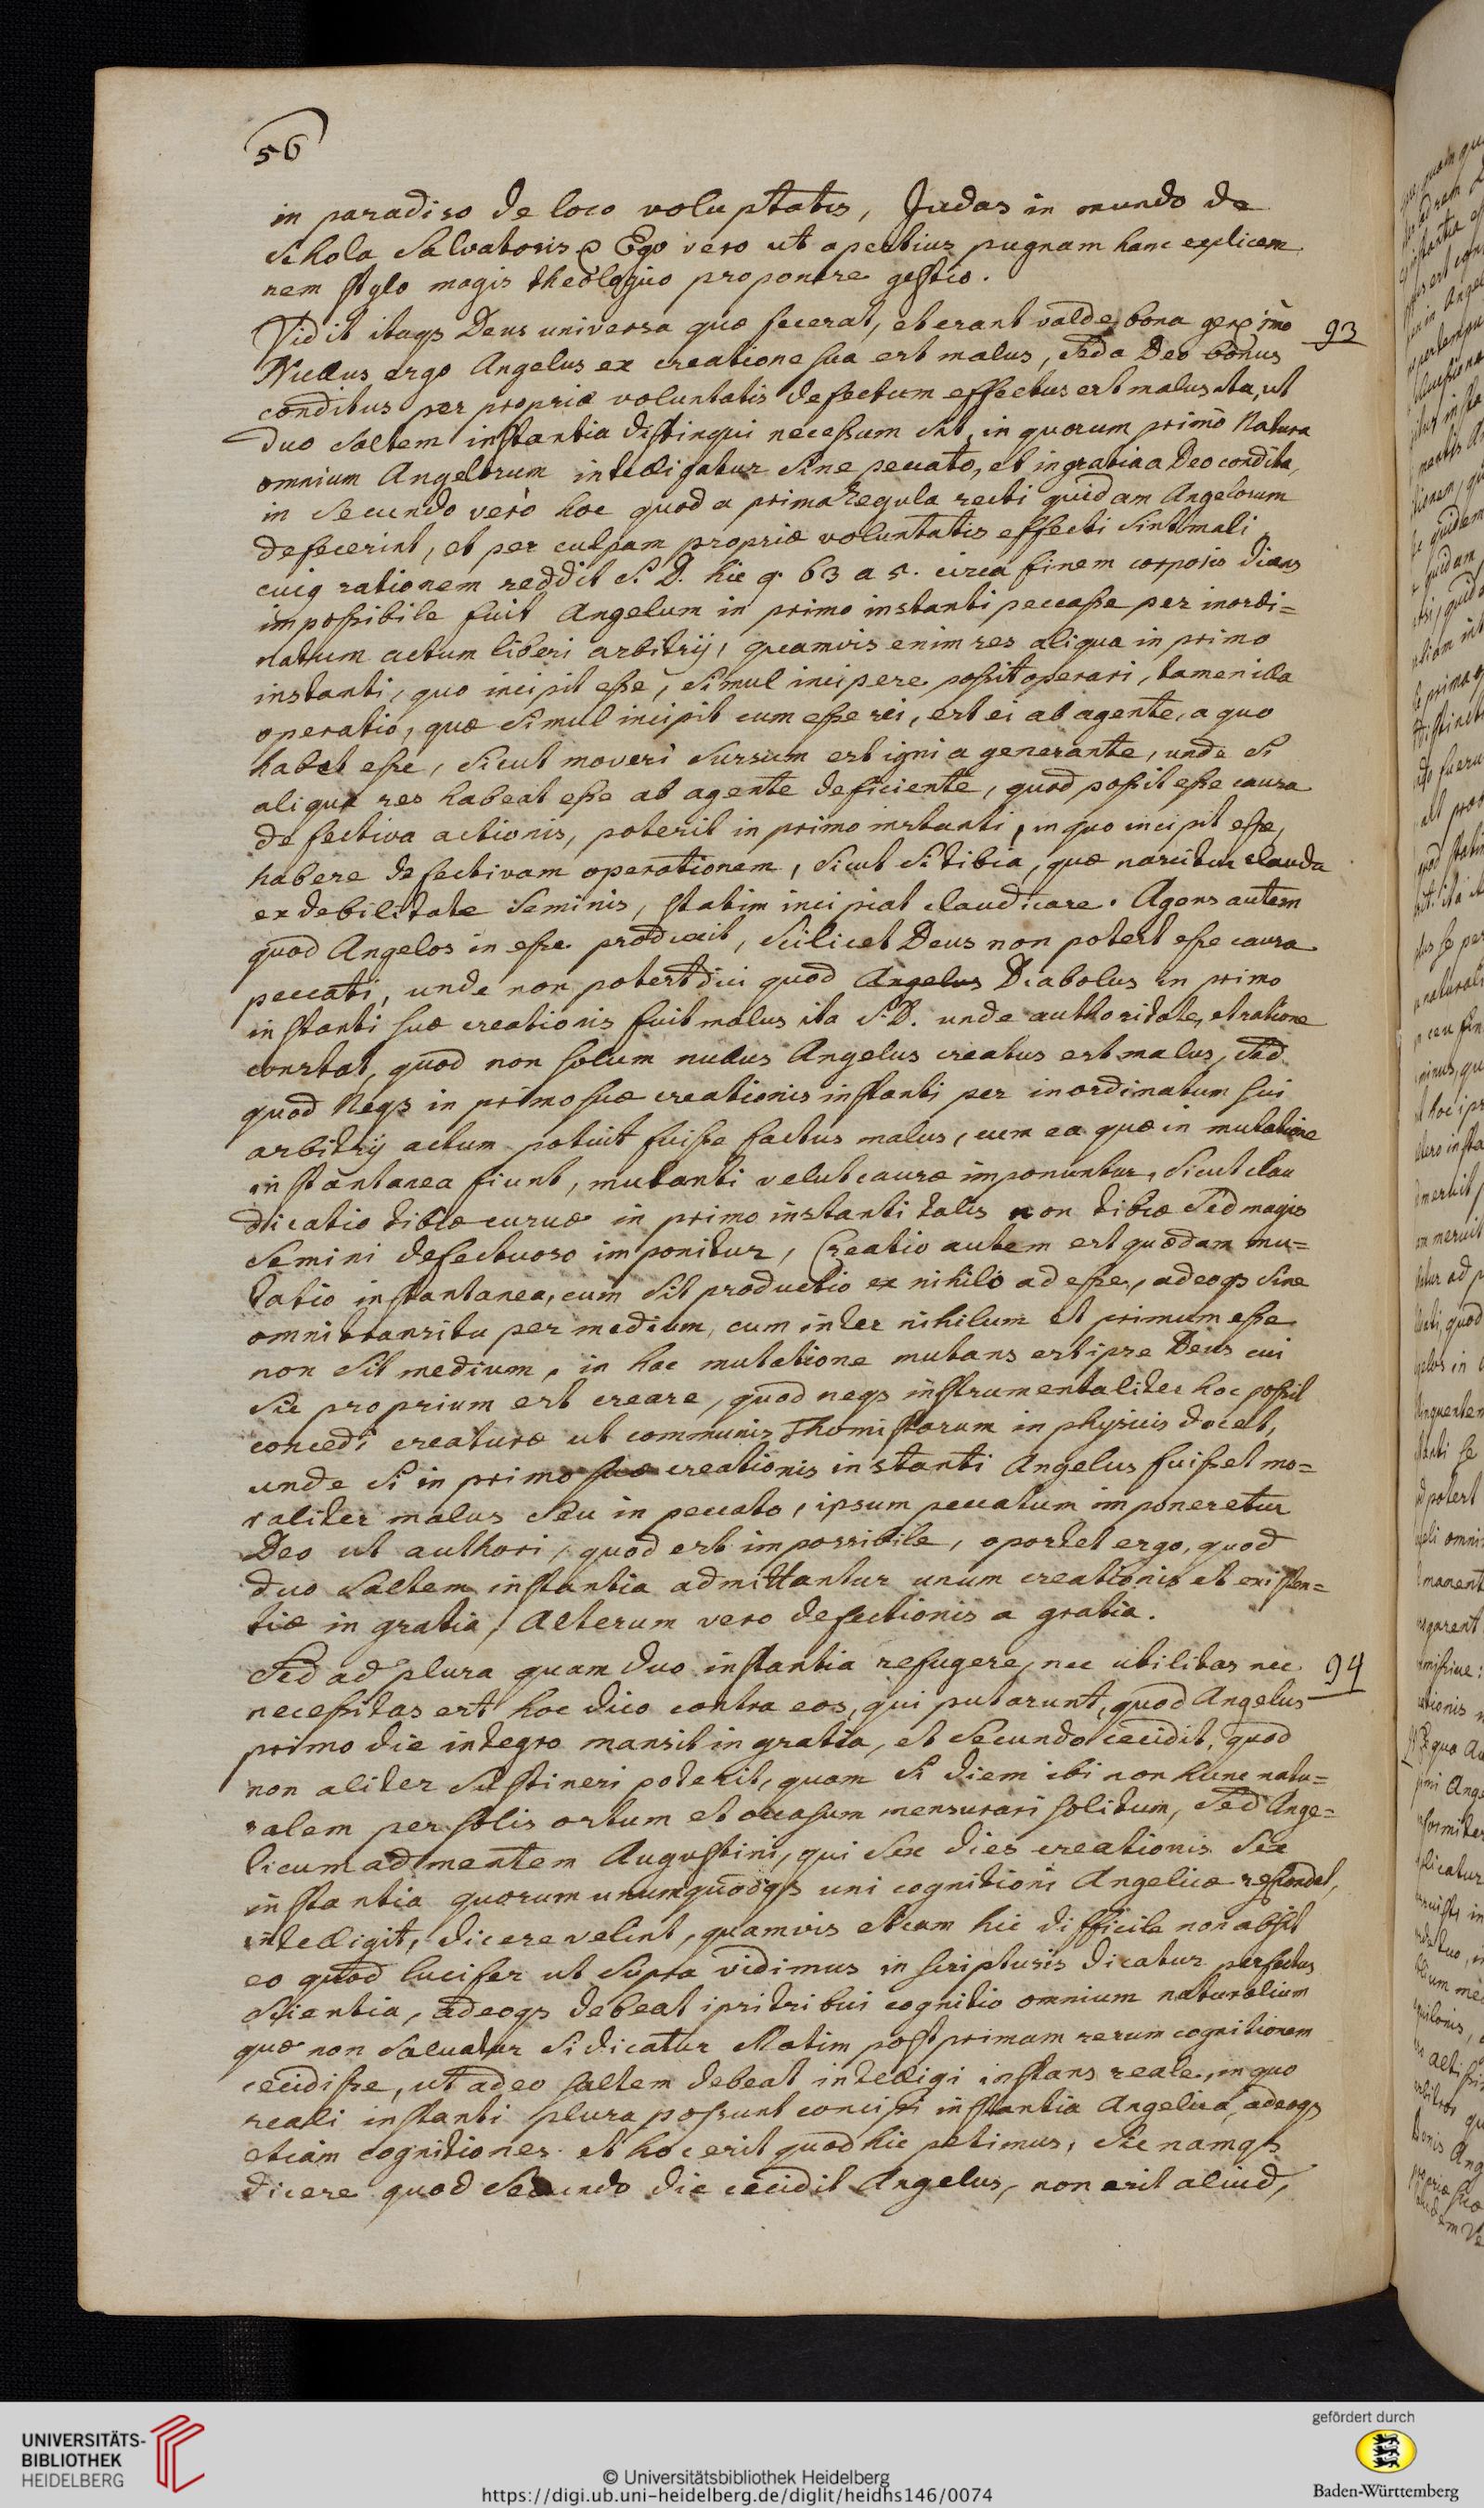 56
in paradiso de loco voluptatis, Judas in mundo de
Schola Salvatoris. Ego vero ut apertius pugnam hanc explicem
rem stylo magis theologico proponere gestio.
Vidit itaqs Deus universa quæ fecerat, et erant valde bona gen: 1mo 93
Nullus ergo Angelus ex creatione sua est malus, sed a Deo bonus
conditus per propriæ voluntatis defectum effectus est malus ita, ut
duo saltem instantia distingui necessum sit, in quorum primo Natura
omnium Angelorum intelligatur sine peccato, et in gratia a Deo condita,
in secundo verò hoc quod a prima regula recti quidam Angelorum
defecerint, et per culpam propriæ voluntatis effecti sint mali
cuig rationem reddit S. D. hic q. 63 a 5. circa finem corporis dicens
impossibile fuit Angelum in primo instanti peccasse per inordi=
natum actum liberi arbitrij, quamvis enim res aliqua in primo
instanti, quo incipit esse, simul incipere possit operari, tamen illa
operatio, quæ simul incipit cum esse rei, est ei ab agente, a quo
habet esse, sicut moveri sursum est igni a generante, unde si
aliqua res habeat esse ab agente deficiente, quod possit esse causa
defectiva actionis, poterit in primo instanti, in quo incipit esse,
habere defectivam operationem, sicut si tibia, quæ nascitur clauda
ex debilitate seminis, statim incipiat claudicare. Agens autem
quod Angelos in esse produxit, scilicet Deus non potest esse causa
peccati, unde non potest dici quod Angelus Diabolus in primo
instanti suæ creationis fuit malus ita S. D. unde authoritate, et ratione
constat, quod non solum nullus Angelus creatus est malus, sed
quod Neqs in primo suæ creationis instanti per inordinatum sui
arbitrij actum potuit fuisse factus malus, cum ea quæ in mutatione
instantanea fiunt, mutanti velut causæ imponuntur, sicut clau
dicatio tibiæ curvæ in primo instanti talis non tibiæ sed magis
semini defectuoso imponitur, Creatio autem est quædam mu=
tatio instantanea, cum sit productio ex nihilo ad esse, adeoqs sine
omni transitu per medium, cum inter nihilum et primum esse
non sit medium, in hac mutatione mutans est ipse Deus cui
sic proprium est creare, quod neqs instrumentaliter hoc possit
concedi creaturæ ut communis Thomistarum in physicis docet,
unde si in primo suæ creationis instanti Angelus fuisset mo=
raliter malus seu in peccato, ipsum peccatum imponeretur
Deo ut authori, quod est impossibile, oportet ergo, quod
duo saltem instantia admittantur unum creationis et existen=
tiæ in gratia, Alterum vero defectionis a gratia.
Sed ad plura quam duo instantia refugere, nec utilitas nec 94
necessitas est hoc dico contra eos, qui putarunt, quod Angelus
primo die integro mansit in gratia, et secundo cecidit, quod
non aliter sustineri poterit, quam si diem ibi non hunc natu=
ralem per solis ortum et occasum mensurari solitum, sed Ange=
licum ad mentem Augustini, qui sex dies creationis sex
instantia quorum unumquodqs uni cognitioni Angelicæ respondet,
intelligit, dicere velint, quamvis etiam hic difficile non absit
eo quod lucifer ut supra vidimus in scripturis dicatur perfectus
scientia, adeoqs debeat ipsi tribui cognitio omnium naturalium
quæ non salvatur si dicatur statim post primam rerum cognitionem
cecidisse, ut adeo saltem debeat intelligi instans reale, in quo
reali instanti plura possunt concipi instantia Angelica, adeoqs
etiam cognitiones et hoc erit quod hic petimus, sic namqs
dicere quod secundo die cecidit Angelus, non erit aliud,
UNIVERSITÄTS-
BIBLIOTHEK
HEIDELBERG
© Universitätsbibliothek Heidelberg
https://digi.ub.uni-heidelberg.de/diglit/heidhs146/0074
gefördert durch
Baden-Württemberg